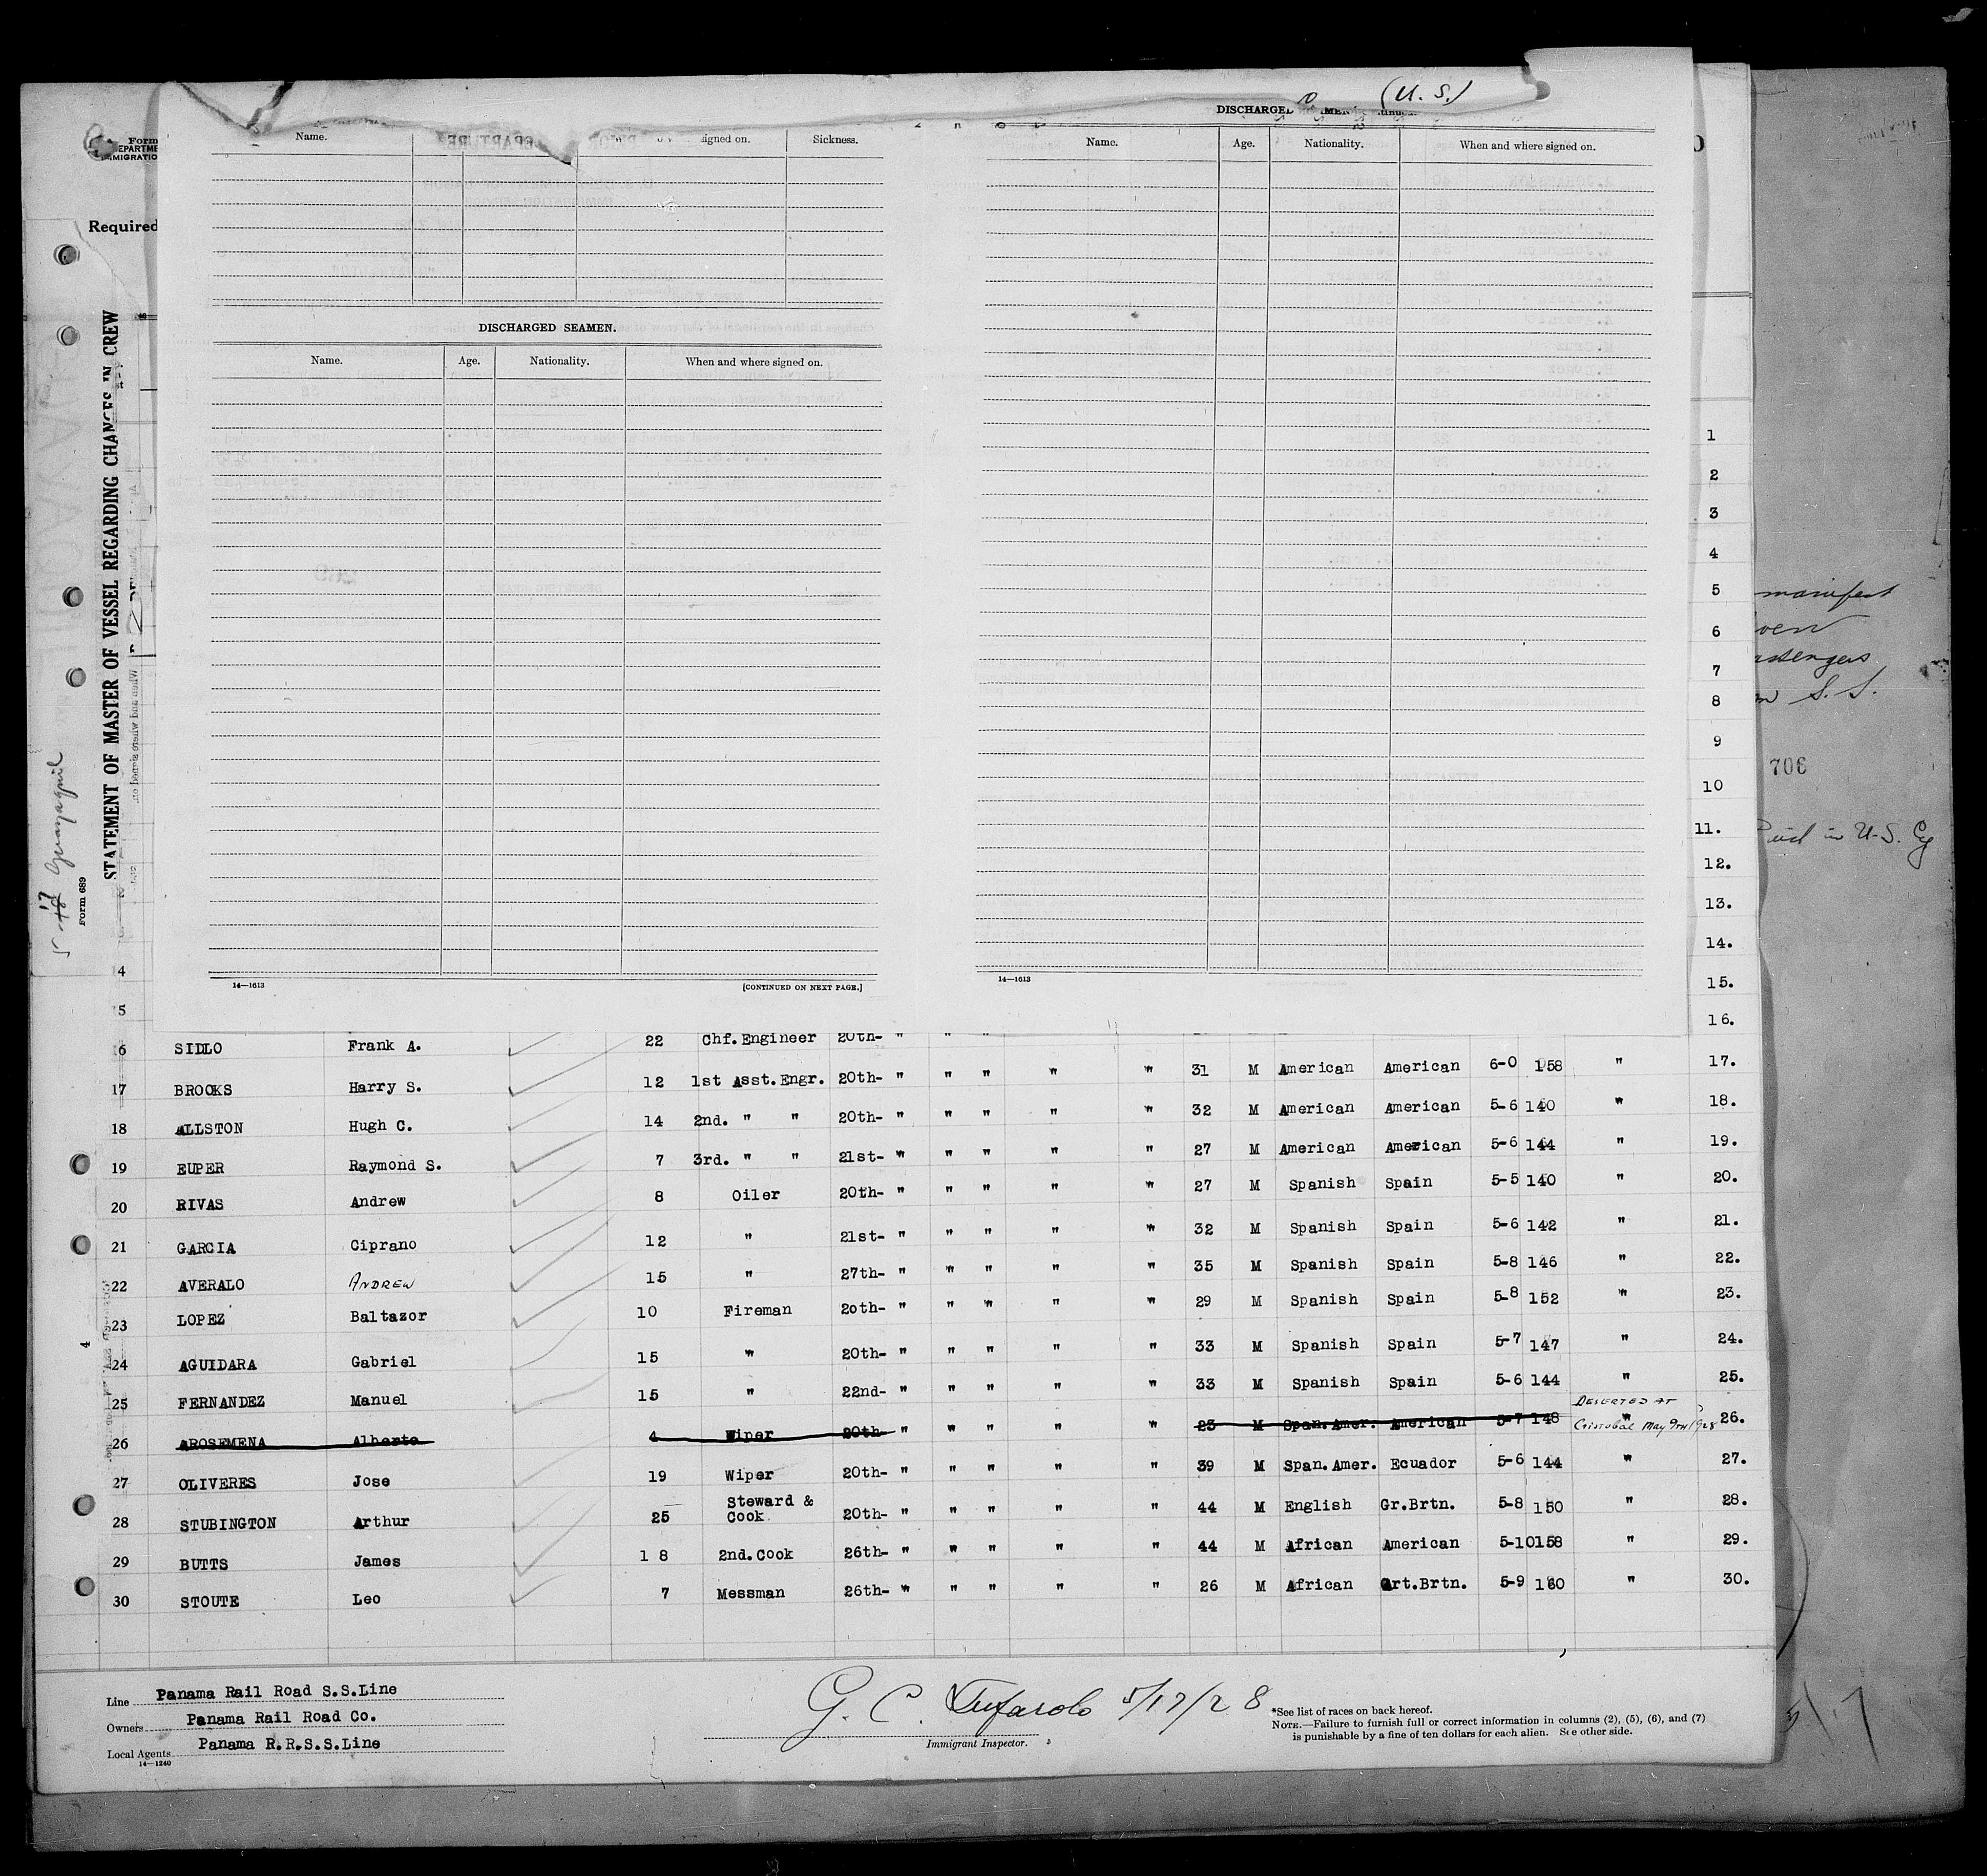 (U. S.)
DISCHARGED
Name. signed on. Sickness.
Name. Age. Nationality. When and where signed on.
Form
Required
DISCHARGED SEAMEN.
Name. Age. Nationality. When and where signed on.
STATEMENT OF MASTER OF VESSEL REGARDING CHANGES IN CREW
Form 689
Guayaquil
17
1
2
3
4
5
6
7
8
9
10
11.
12.
13.
14.
15.
16.
manifest
S. S.
706
in U.S.
14—1613 [CONTINUED ON NEXT PAGE.]
14—1613
4
5
16 SIDLO Frank A. 22 Chf. Engineer 20th- " " "
17 BROOKS Harry S. 12 1st Asst. Engr. 20th- " " " " " 31 M American American 6-0 158 " 17.
18 ALLSTON Hugh C. 14 2nd. " " 20th- " " " " " 32 M American American 5-6 140 " 18.
19 EUPER Raymond S. 7 3rd. " " 21st- " " " " " 27 M American American 5-6 144 " 19.
20 RIVAS Andrew 8 Oiler 20th- " " " " " 27 M Spanish Spain 5-5 140 " 20.
21 GARCIA Ciprano 12 " 21st- " " " " " 32 M Spanish Spain 5-6 142 " 21.
22 AVERALO ANDREW 15 " 27th- " " " " " 35 M Spanish Spain 5-8 146 " 22.
23 LOPEZ Baltazor 10 Fireman 20th- " " " " " 29 M Spanish Spain 5-8 152 " 23.
24 AGUIDARA Gabriel 15 " 20th- " " " " " 33 M Spanish Spain 5-7 147 " 24.
25 FERNANDEZ Manuel 15 " 22nd- " " " " " 33 M Spanish Spain 5-6 144 " 25.
26 AROSEMENA Alberto 4 Wiper 20th- " " " " " 23 M Span. Amer. American 5-7 148 " 26.
DESERTED AT
Cristobal May 9TH 1928
27 OLIVERES Jose 19 Wiper 20th- " " " " " 39 M Span. Amer. Ecuador 5-6 144 " 27.
28 STUBINGTON Arthur 25 Steward & Cook 20th- " " " " " 44 M English Gr.Brtn. 5-8 150 " 28.
29 BUTTS James 1 8 2nd. Cook 26th- " " " " " 44 M African American 5-10 158 " 29.
30 STOUTE Leo 7 Messman 26th- " " " " " 26 M African Grt.Brtn. 5-9 160 " 30.
Line Panama Rail Road S.S.Line
Owners Panama Rail Road Co.
Local Agents Panama R.R.S.S.Line
14—1240
G. C. Tufarolo 5/17/28
Immigrant Inspector.
*See list of races on back hereof.
NOTE.—Failure to furnish full or correct information in columns (2), (5), (6), and (7)
is punishable by a fine of ten dollars for each alien. See other side.